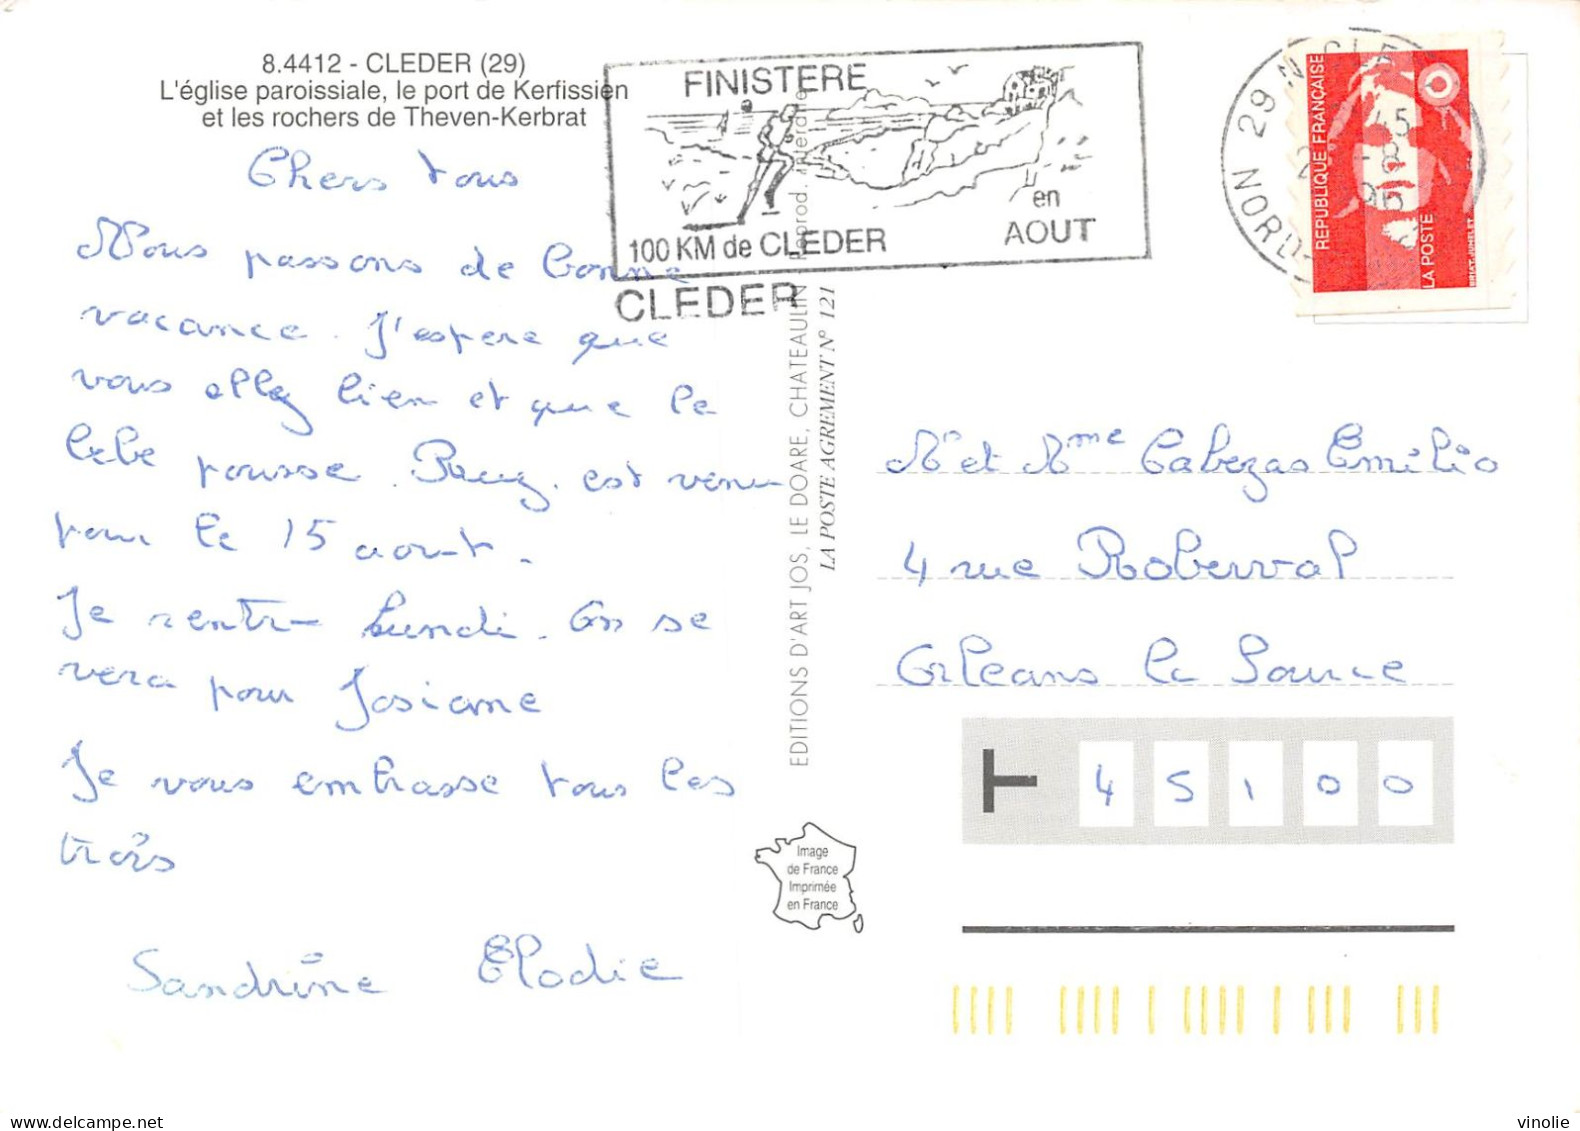 8.4412 - CLEDER (29)
L'église paroissiale, le port de Kerfissien
et les rochers de Theven-Kerbrat
FINISTERE
100 KM de CLEDER
en
AOUT
CLEDER
29 N
NORD
REPUBLIQUE FRANÇAISE
LA POSTE
BRIAT-JUMELET
Chers tous
Nous passons de bonne
vacance. J'espere que
vous allez bien et que le
bebe pousse. est venu
pour le 15 aout.
Je rentre Lundi. On se
vera pour Josiane
Je vous embrasse tous les
trois
Sandrine Elodie
EDITIONS D'ART JOS, LE DOARE, CHATEAULIN - Reprod. interdite
LA POSTE AGREMENT N° 121
Mr et Mme Cabezas Emilio
4 rue Roberval
Orleans la Source
T 45100
Image
de France
Imprimée
en France
vinolie